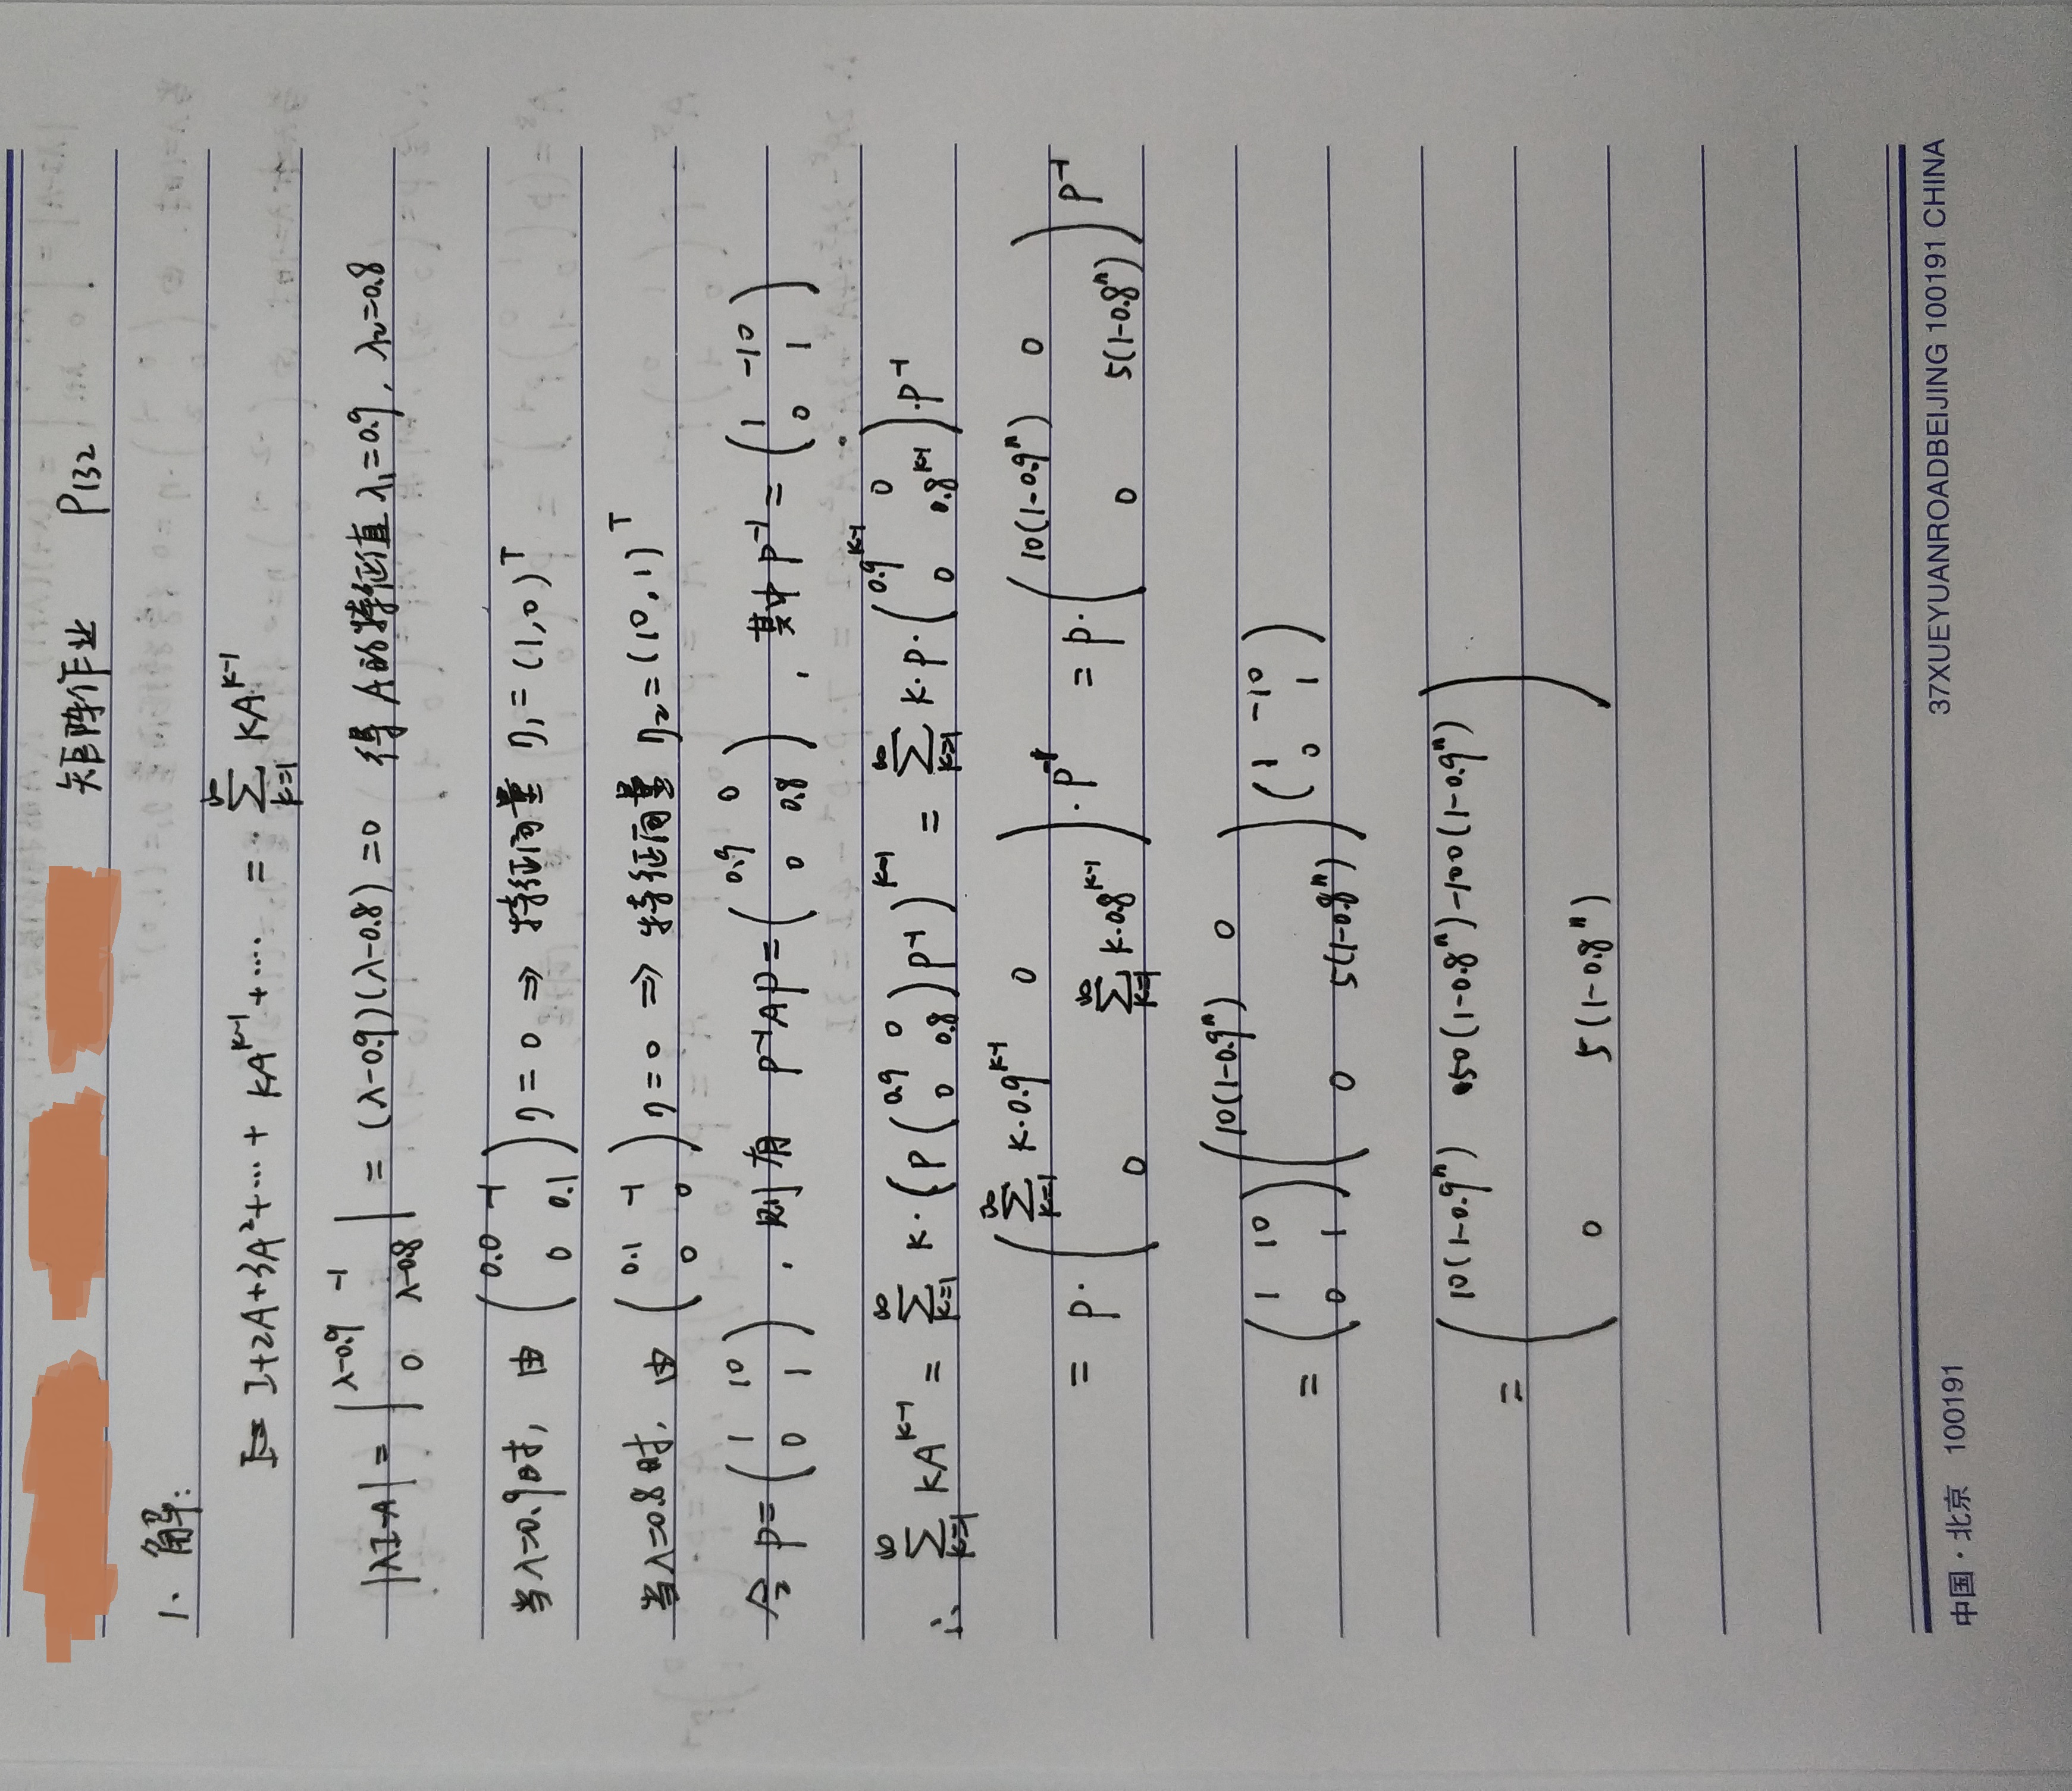 矩阵作业 P132
1、解:
I+2A+3A²+…+KA^{K-1}+…. = ∑_{K=1}^{∞} KA^{K-1}
|λI-A| = | λ-0.9 -1 ; 0 λ-0.8 | = (λ-0.9)(λ-0.8)=0 得 A的特征值 λ₁=0.9, λ₂=0.8
当λ=0.9时, 由 ( 0.0 -1 ; 0 0.1 ) η=0 ⇒ 特征向量 η₁=(1,0)^T
当λ=0.8时, 由 ( 0.1 -1 ; 0 0 ) η=0 ⇒ 特征向量 η₂=(10,1)^T
令 P=( 1 10 ; 0 1 ), 则有 P^{-1}AP=( 0.9 0 ; 0 0.8 ), 其中 P^{-1}=( 1 -10 ; 0 1 )
∴ ∑_{K=1}^{∞} KA^{K-1} = ∑_{K=1}^{∞} K·(P( 0.9 0 ; 0 0.8 )P^{-1})^{K-1} = ∑_{K=1}^{∞} K·P·( 0.9^{K-1} 0 ; 0 0.8^{K-1} )·P^{-1}
= P·( ∑_{K=1}^{∞} K·0.9^{K-1} 0 ; 0 ∑_{K=1}^{∞} K·0.8^{K-1} )·P^{-1} = P·( 10(1-0.9ⁿ) 0 ; 0 5(1-0.8ⁿ) )P^{-1}
= ( 1 10 ; 0 1 )( 10(1-0.9ⁿ) 0 ; 0 5(1-0.8ⁿ) )( 1 -10 ; 0 1 )
= ( 10(1-0.9ⁿ) 50(1-0.8ⁿ)-100(1-0.9ⁿ) ; 0 5(1-0.8ⁿ) )
中国·北京 100191 37XUEYUANROADBEIJING 100191 CHINA